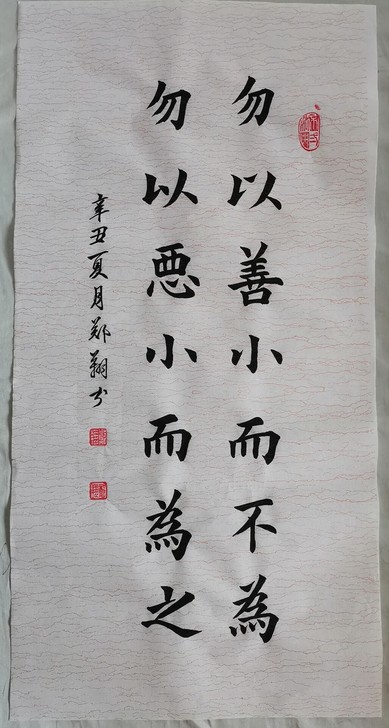 勿以善小而不為
勿以悪小而為之
辛丑夏月郑翔书